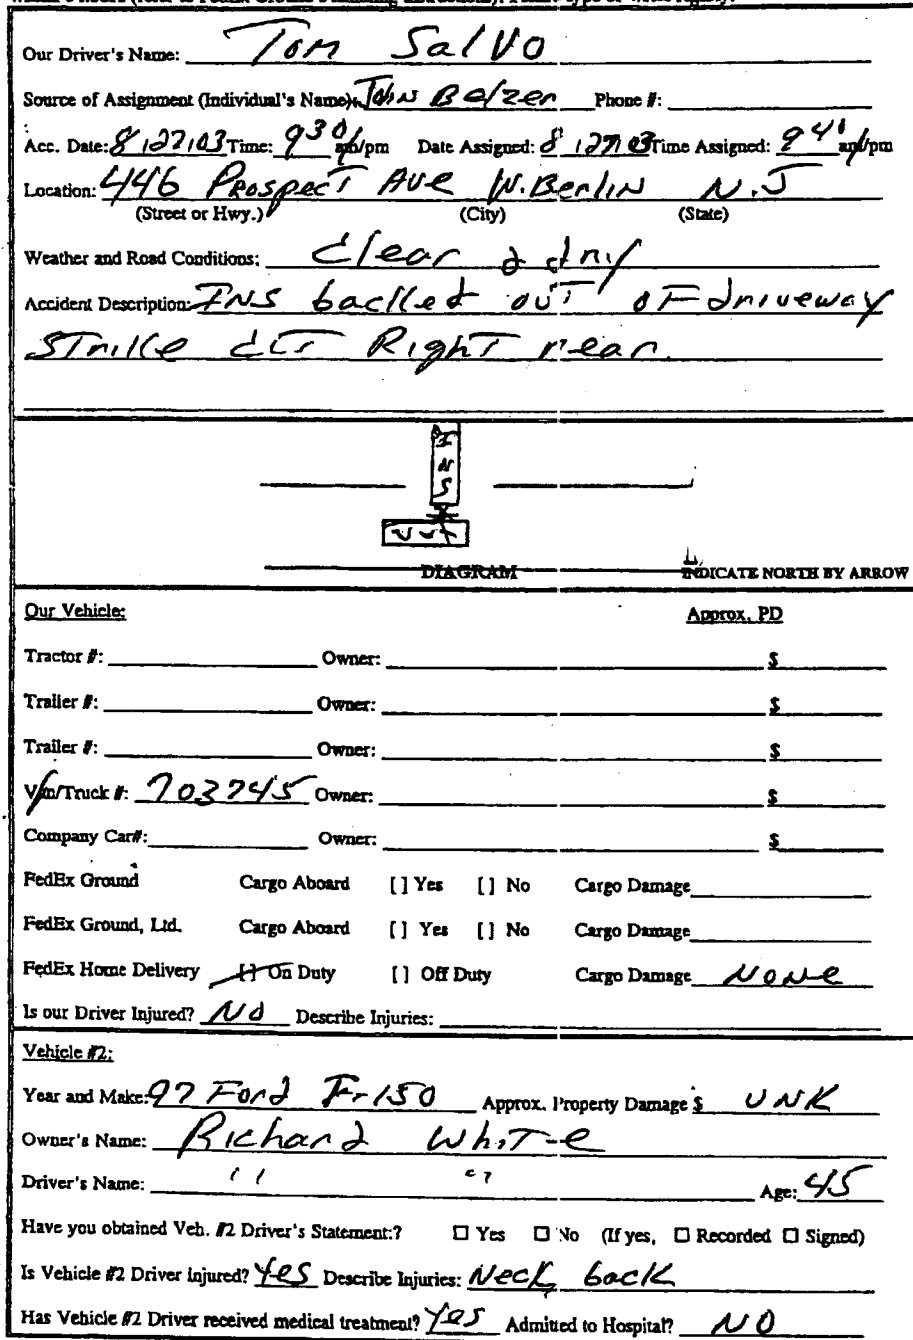 Our Driver's Name: Tom Salvo
Source of Assignment (Individual's Name): John Belzer Phone #:
Acc. Date: 8/27/03 Time: 9 30 am/pm Date Assigned: 8/27/03 Time Assigned: 9 40 am/pm
Location: 446 Prospect Ave W. Berlin N.J
(Street or Hwy.) (City) (State)
Weather and Road Conditions: clear & dry
Accident Description: INS backed out of driveway
Strike Right rear
INS
DIAGRAM INDICATE NORTH BY ARROW
Our Vehicle: Approx. PD
Tractor #: Owner: $
Trailer #: Owner: $
Trailer #: Owner: $
Van/Truck #: 703745 Owner: $
Company Car#: Owner: $
FedEx Ground Cargo Aboard [ ] Yes [ ] No Cargo Damage
FedEx Ground, Ltd. Cargo Aboard [ ] Yes [ ] No Cargo Damage
FedEx Home Delivery [ ] On Duty [ ] Off Duty Cargo Damage None
Is our Driver Injured? No Describe Injuries:
Vehicle #2:
Year and Make: 97 Ford F-150 Approx. Property Damage $ UNK
Owner's Name: Richard White
Driver's Name: " " Age: 45
Have you obtained Veh. #2 Driver's Statement:? ☐ Yes ☐ No (If yes, ☐ Recorded ☐ Signed)
Is Vehicle #2 Driver injured? Yes Describe Injuries: Neck, back
Has Vehicle #2 Driver received medical treatment? Yes Admitted to Hospital? NO